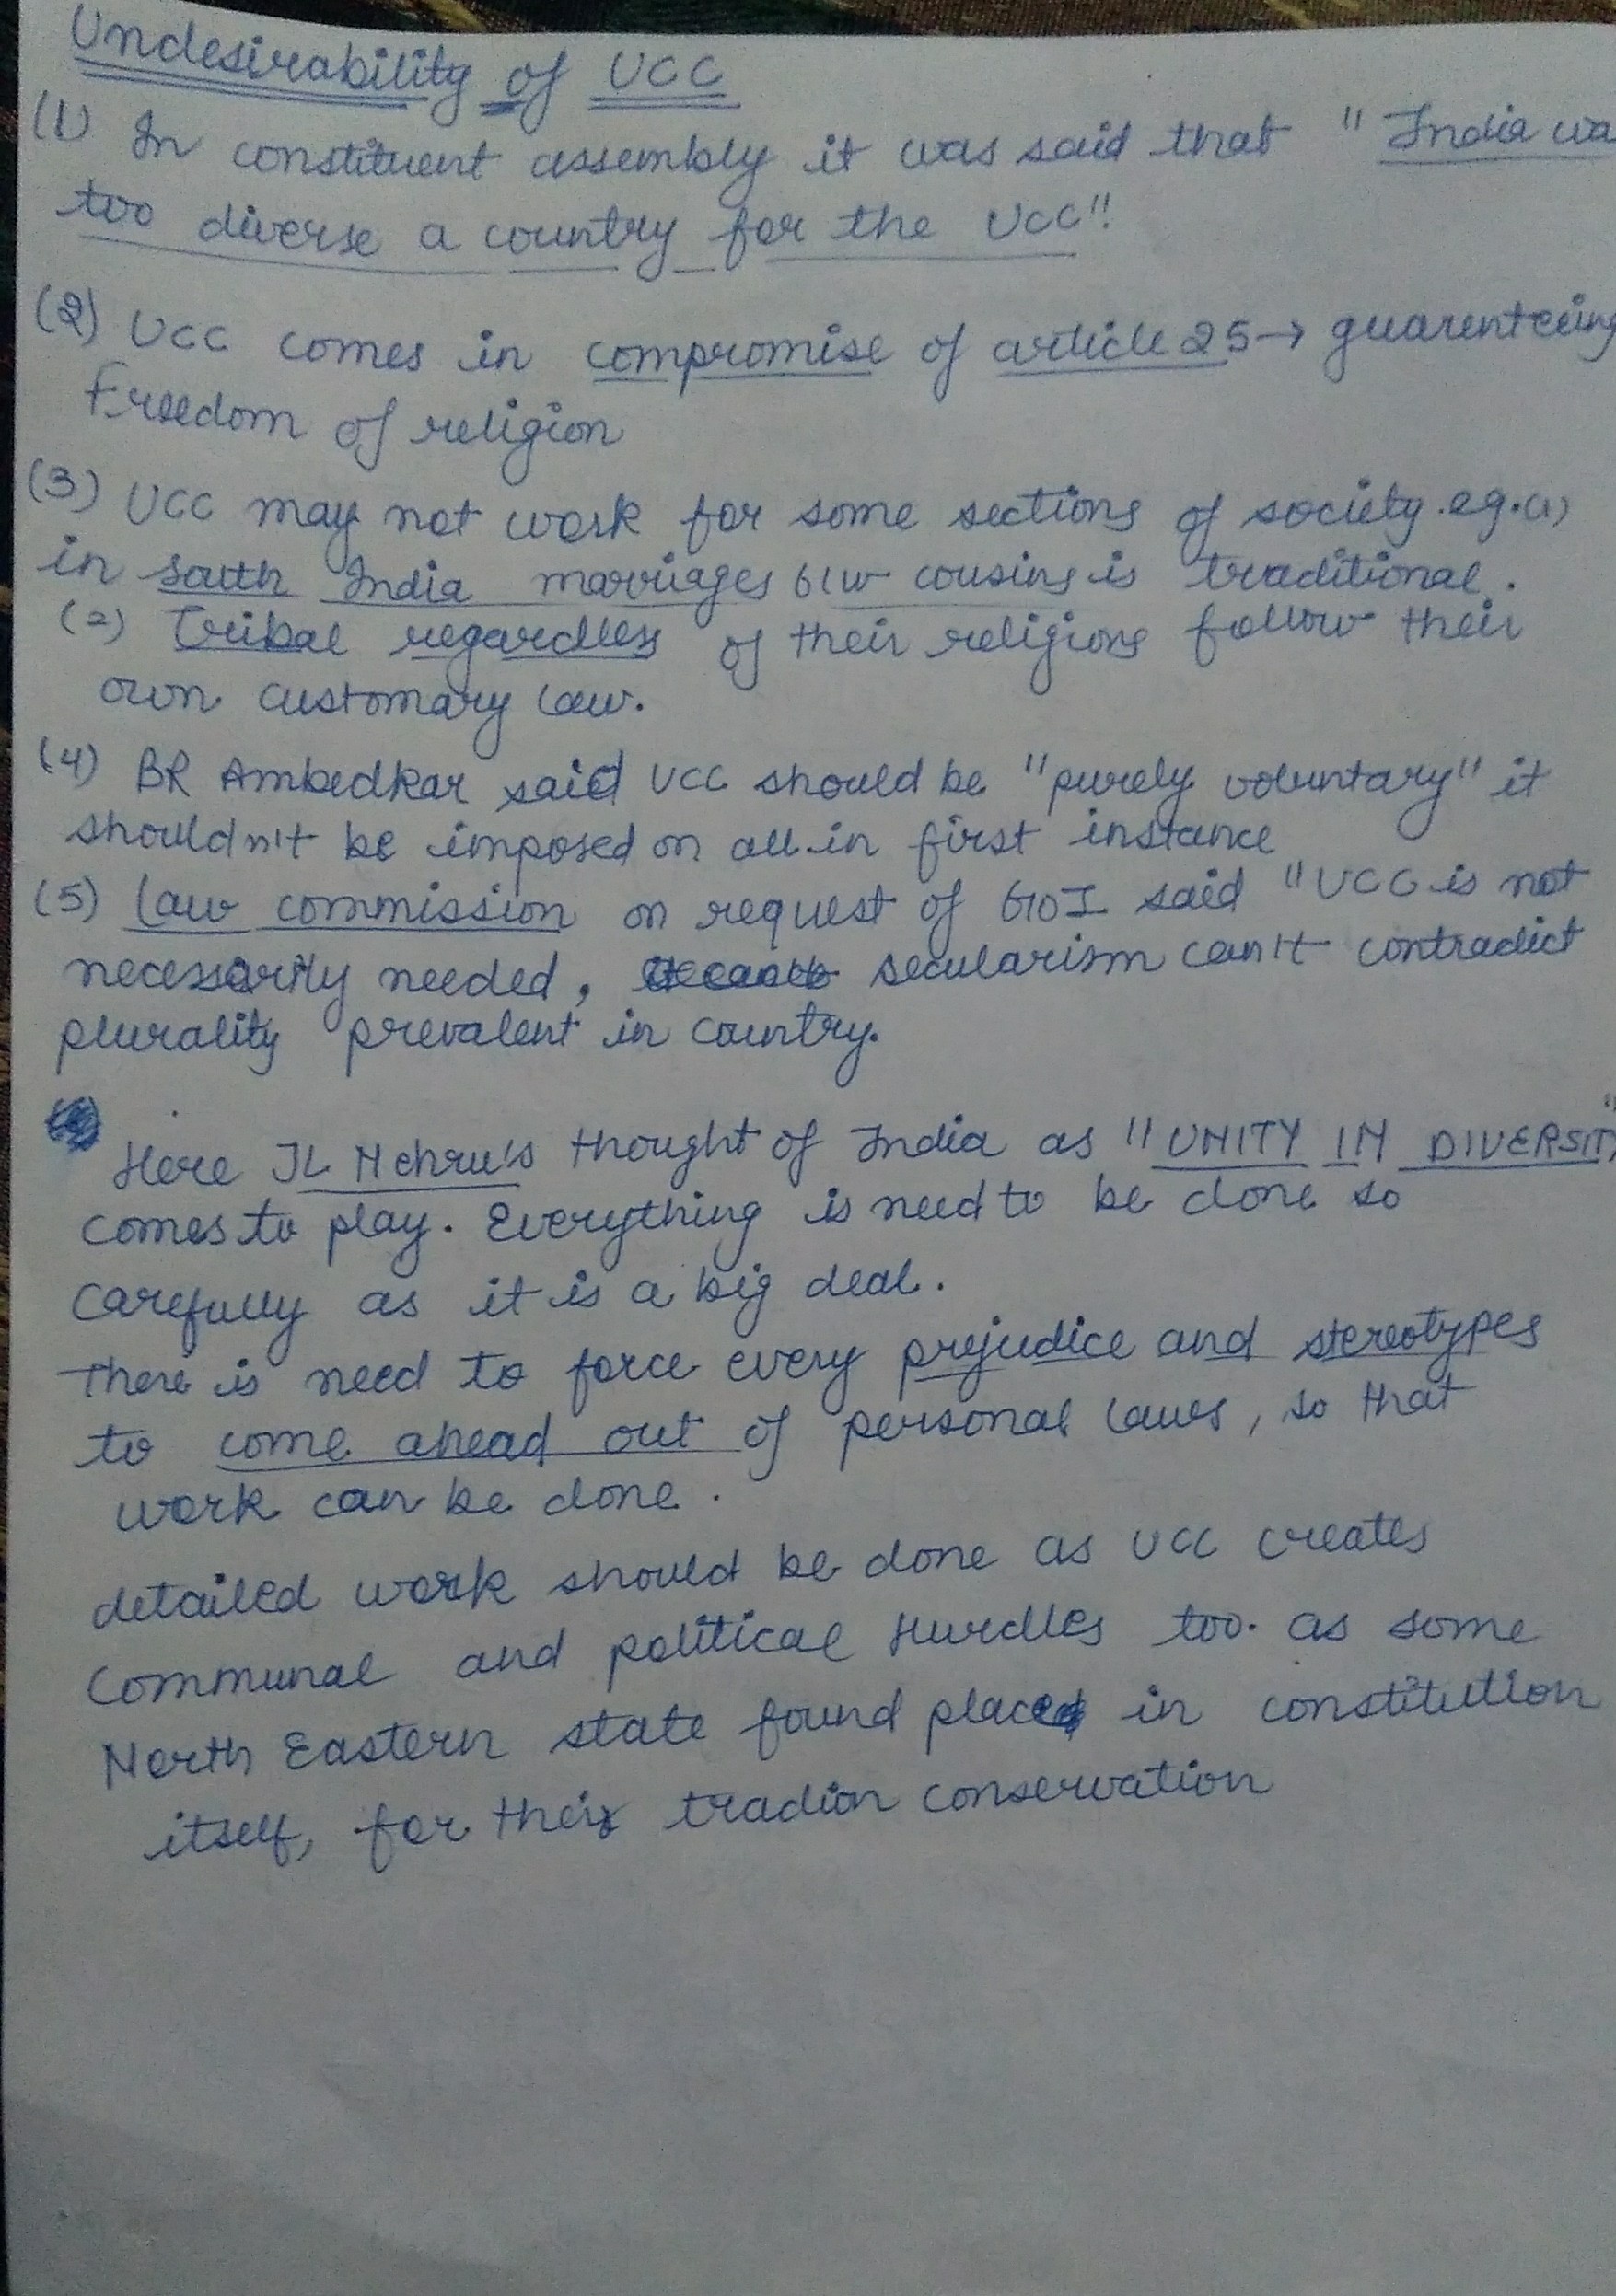 Undesirability of UCC
(1) In constituent assembly it was said that "India wa
too diverse a country for the UCC".
(2) UCC comes in compromise of article 25 → guarenteeing
Freedom of religion
(3) UCC may not work for some sections of society. eg. (1)
in South India marriages b/w cousins is traditional.
(2) Tribal regardless of their religions follow their
own customary law.
(4) BR Ambedkar said UCC should be "purely voluntary" it
shouldn't be imposed on all in first instance
(5) Law commission on request of GOI said "UCC is not
necessarily needed, secularism can't contradict
plurality prevalent in country.
Here JL Nehru's thought of India as "UNITY IN DIVERSITY"
comes to play. Everything is need to be done so
carefully as it is a big deal.
There is need to force every prejudice and stereotypes
to come ahead out of personal laws, so that
work can be done.
detailed work should be done as UCC creates
communal and political Hurdles too. as some
North Eastern state found place in constitution
itself, for their tradion conservation